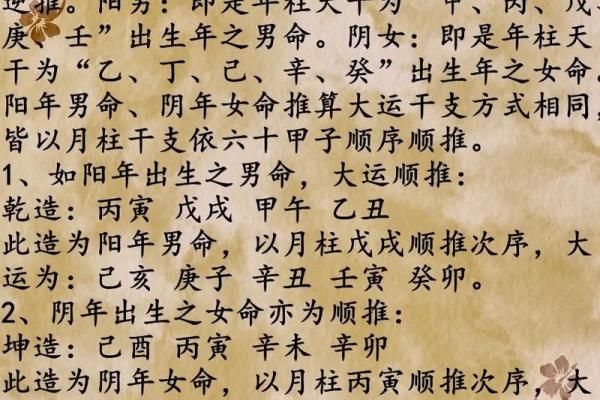 逆推。阳男：即是年柱天干为“甲、丙、戊、
庚、壬”出生年之男命。阴女：即是年柱天
干为“乙、丁、己、辛、癸”出生年之女命。
阳年男命、阴年女命推算大运干支方式相同，
皆以月柱干支依六十甲子顺序顺推。
1、如阳年出生之男命，大运顺推：
乾造：丙寅 戊戌 甲午 乙丑
此造为阳年男命，以月柱戊戌顺推次序，大
运为：己亥 庚子 辛丑 壬寅 癸卯。
2、阴年出生之女命亦为顺推：
坤造：己酉 丙寅 辛未 辛卯
此造为阴年女命，以月柱丙寅顺推次序，大